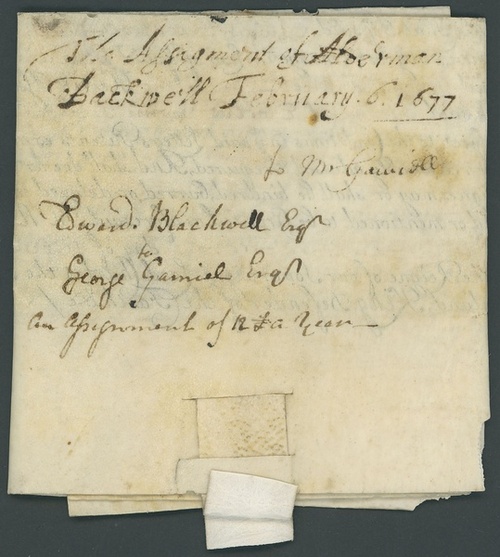 The Assigment of Alderman
Backwell February. 6. 1677
to Mr Gawidll
Edward. Blackwell Esqr
to
George Gamiel Esqr
an assignment of 12 £ a year